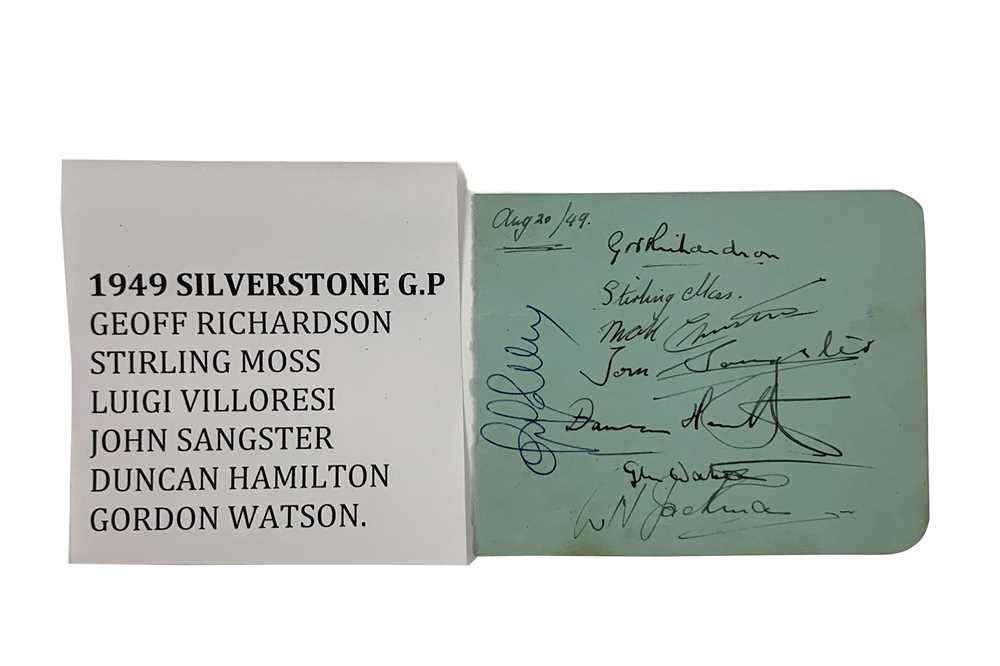 1949 SILVERSTONE G.P
GEOFF RICHARDSON
STIRLING MOSS
LUIGI VILLORESI
JOHN SANGSTER
DUNCAN HAMILTON
GORDON WATSON.
Aug 20/49.
Richardson
Stirling Moss.
Sangster
Duncan Hamilton
W N Jackman